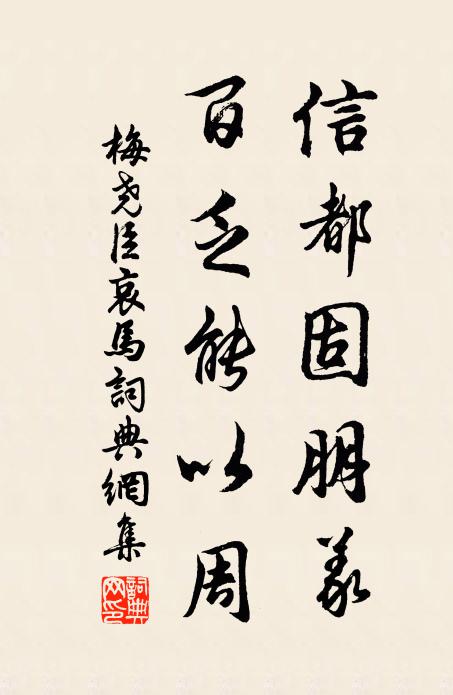 信都固朋義
百乏能以周
梅堯臣哀馬詞典網集
詞典網印